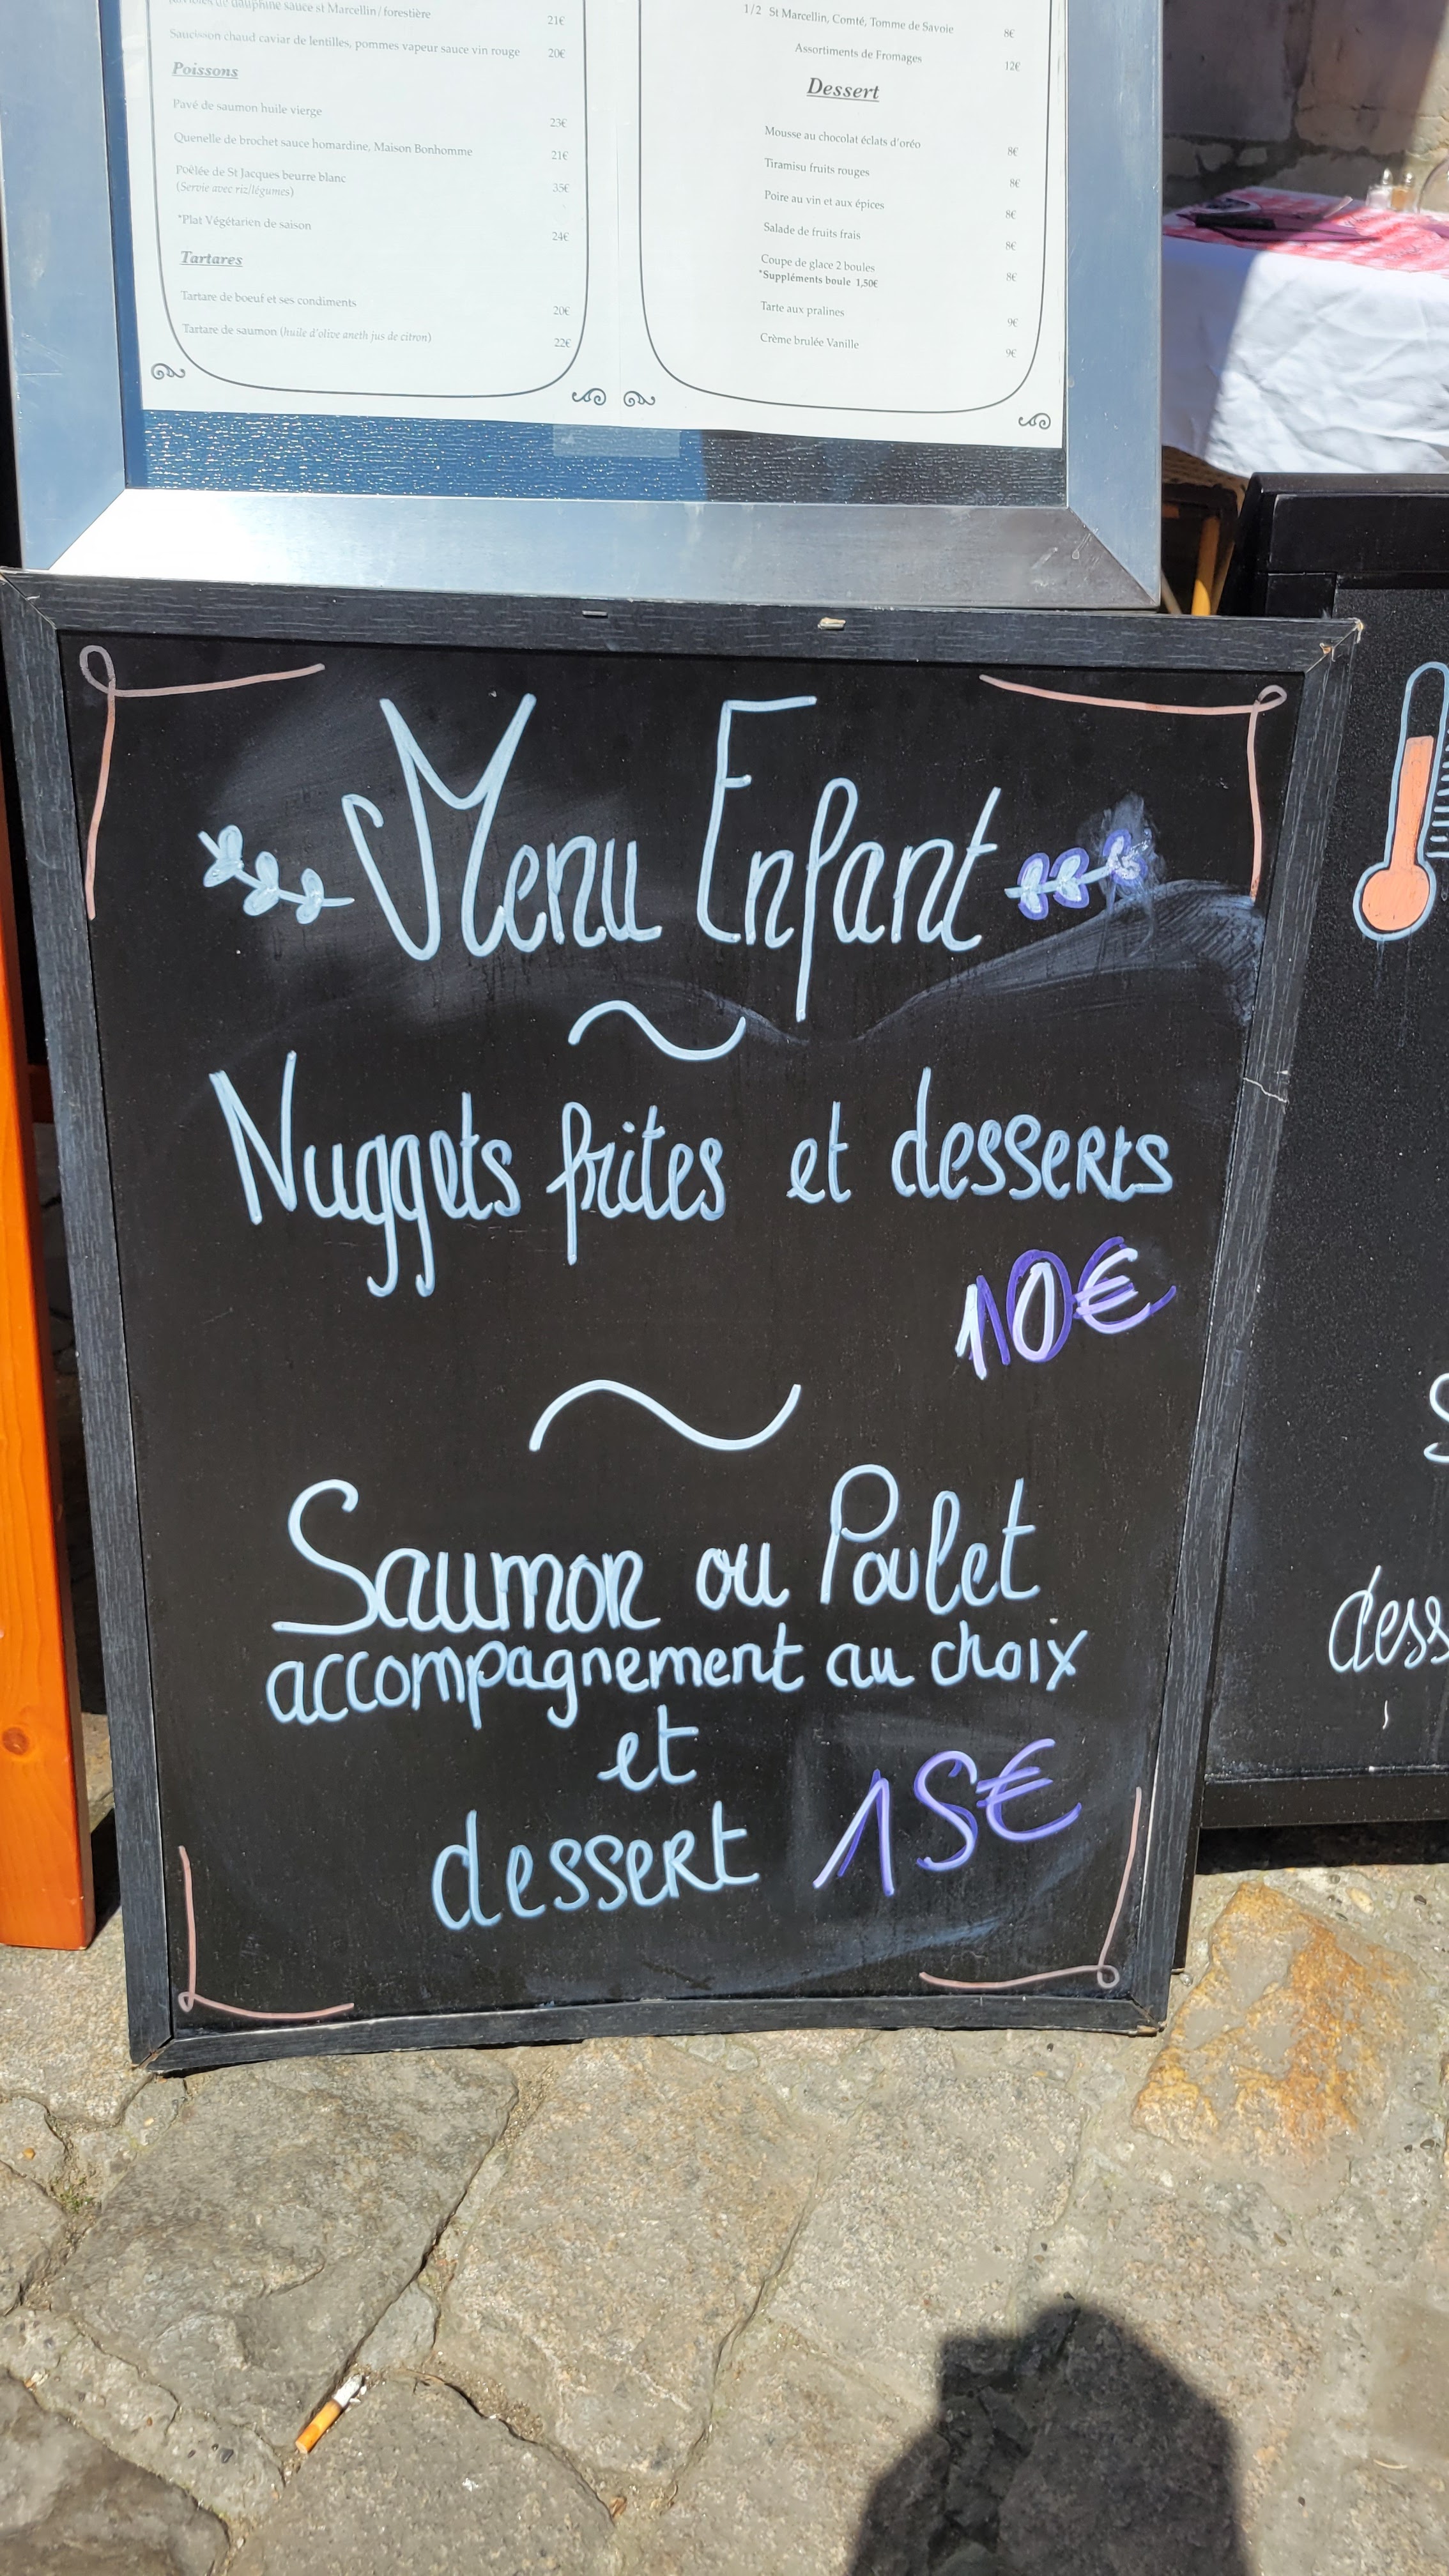 de dauphine sauce st Marcellin/forestière 21€
Saucisson chaud caviar de lentilles, pommes vapeur sauce vin rouge 20€
Poissons
Pavé de saumon huile vierge 23€
Quenelle de brochet sauce homardine, Maison Bonhomme 21€
Poêlée de St Jacques beurre blanc 35€
(Servie avec riz/légumes)
*Plat Végétarien de saison 24€
Tartares
Tartare de boeuf et ses condiments 20€
Tartare de saumon (huile d'olive aneth jus de citron) 22€
1/2 St Marcellin, Comté, Tomme de Savoie 8€
Assortiments de Fromages 12€
Dessert
Mousse au chocolat éclats d'oréo 8€
Tiramisu fruits rouges 8€
Poire au vin et aux épices 8€
Salade de fruits frais 8€
Coupe de glace 2 boules 8€
*Suppléments boule 1,50€
Tarte aux pralines 9€
Crème brulée Vanille 9€
Menu Enfant
Nuggets frites et desserts
10€
Saumon ou Poulet
accompagnement au choix
et
dessert 15€
dess